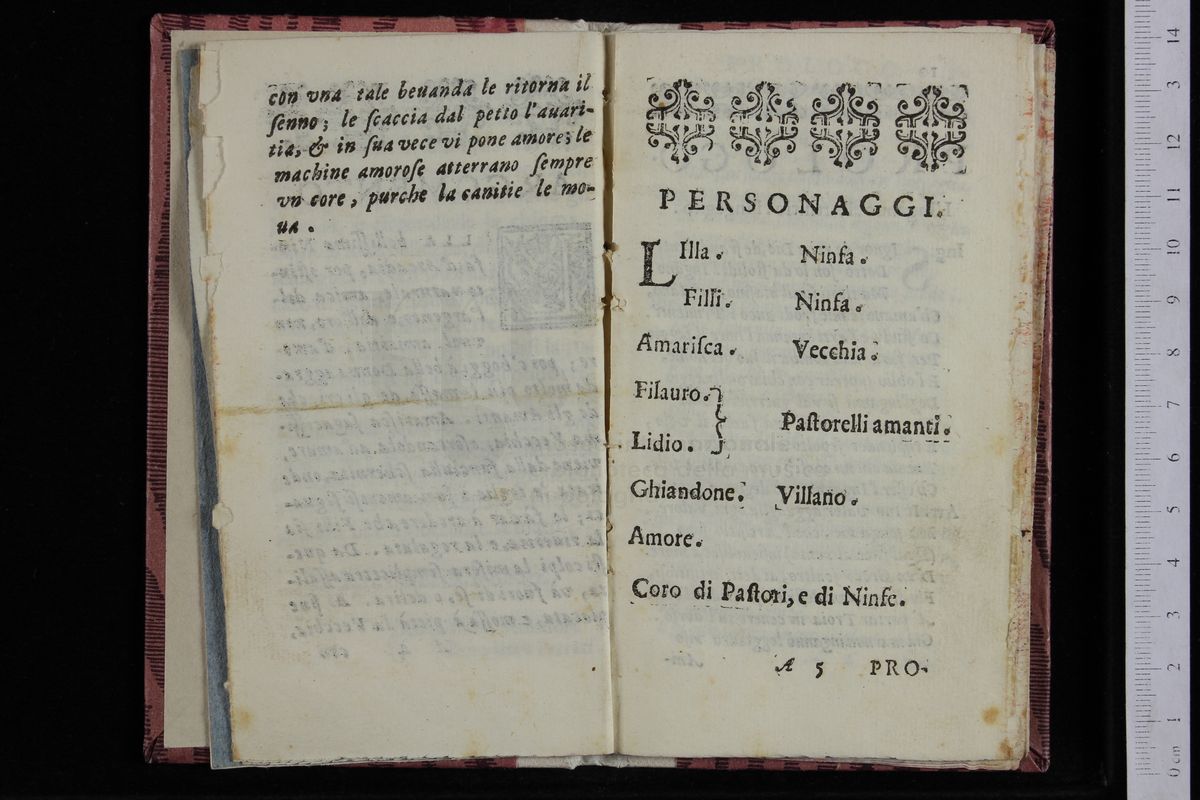 con vna tale beuanda le ritorna il
ſenno; le ſcaccia dal petto l'auari-
tia, & in ſua vece vi pone amore; le
machine amoroſe atterrano ſempre
vn core, purche la canitie le mo-
ua.
PERSONAGGI.
LIlla. Ninfa.
Filli. Ninfa.
Amariſca. Vecchia.
Filauro.
Paſtorelli amanti.
Lidio.
Ghiandone. Villano.
Amore.
Coro di Paſtori, e di Ninfe.
A 5 PRO-
14
3
12
11
10
9
8
7
6
5
4
3
2
1
0 cm